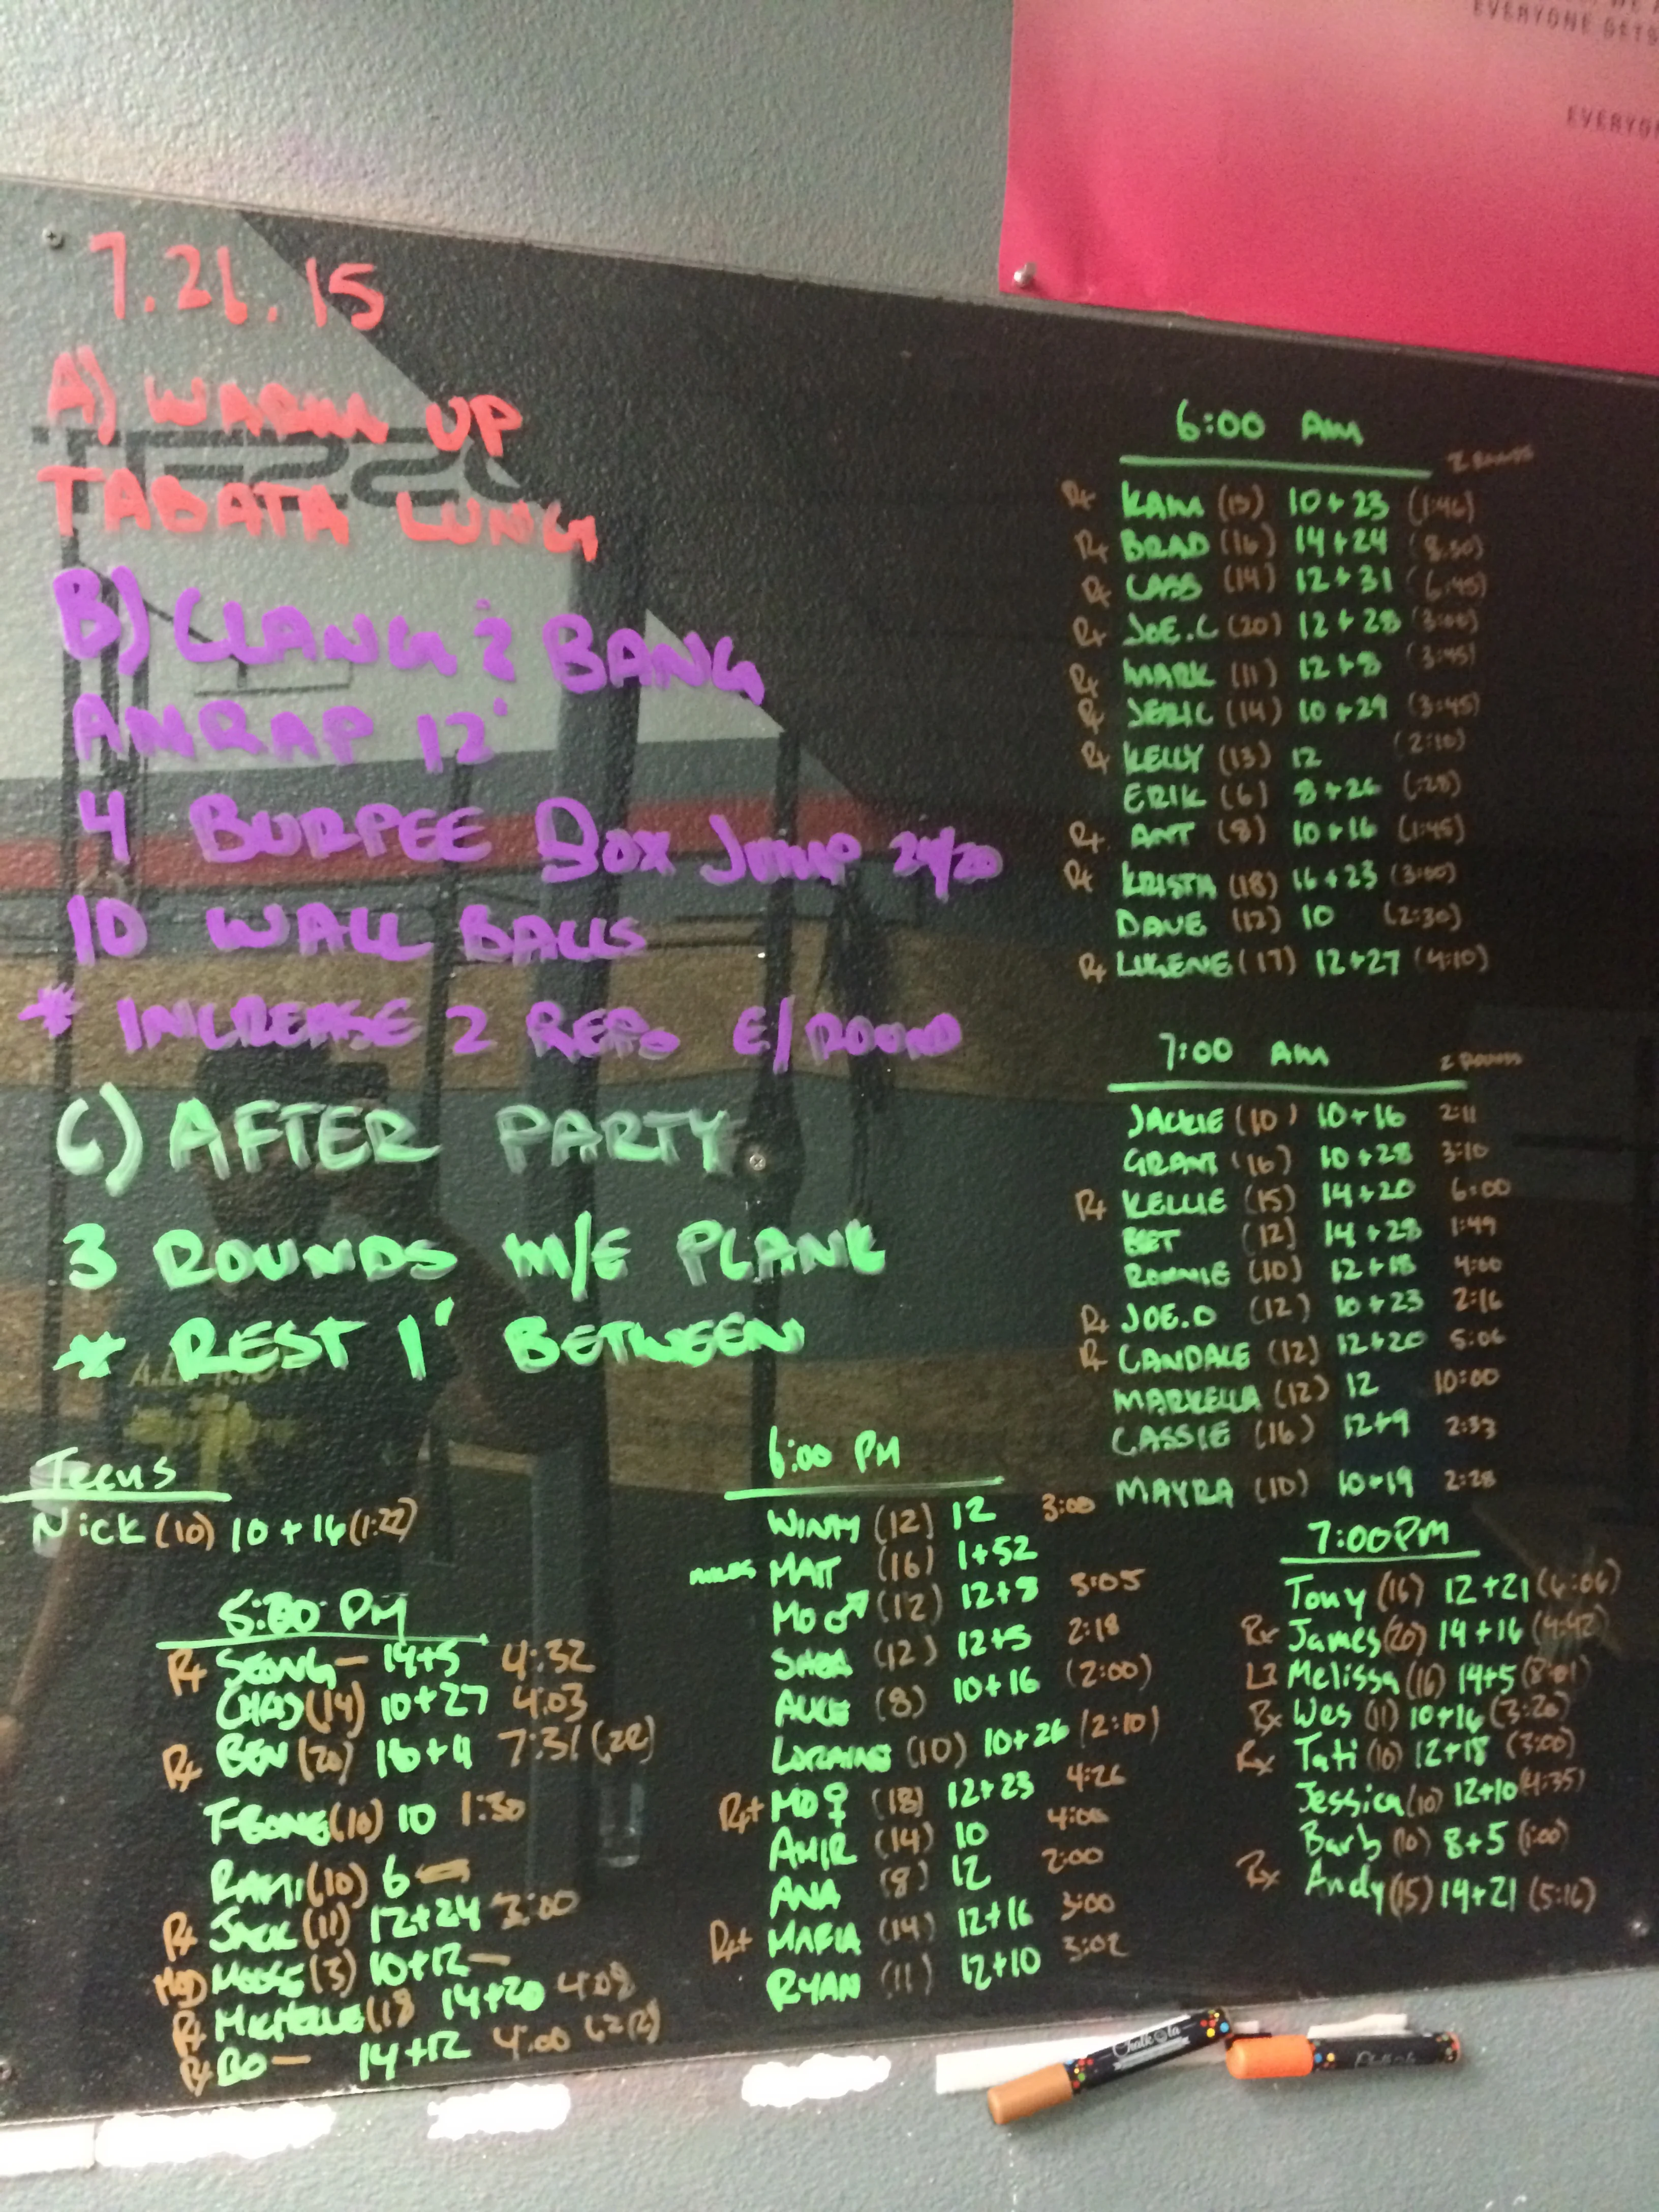 EVERYONE GETS
7.21.15
A) WARM UP
TABATA LUNG
B) CLANG & BANG
AMRAP 12'
4 BURPEE BOX JUMP 24/20
10 WALL BALLS
* INCREASE 2 REPS E/ROUND
C) AFTER PARTY
3 ROUNDS M/E PLANK
* REST 1' BETWEEN
6:00 AM
2 ROUNDS
Rx KAM (15) 10+23 (1:46)
Rx BRAD (16) 14+24 (8:30)
Rx CASS (14) 12+31 (6:45)
Rx JOE.C (20) 12+28 (3:00)
Rx MARK (11) 12+8 (3:45)
Rx JERIC (14) 10+29 (3:45)
Rx KELLY (13) 12 (2:10)
ERIK (6) 8+26 (:28)
Rx ANT (8) 10+16 (1:45)
Rx KRISTA (18) 16+23 (3:00)
DAVE (12) 10 (2:30)
Rx LUGENE (17) 12+27 (4:10)
7:00 AM
2 ROUNDS
JACKIE (10) 10+16 2:11
GRANT (16) 10+28 3:10
Rx KELLIE (15) 14+20 6:00
BET (12) 14+28 1:49
RONNIE (10) 12+18 4:00
Rx JOE.O (12) 10+23 2:16
Rx CANDALE (12) 12+20 5:06
MARKELLA (12) 12 10:00
CASSIE (16) 12+9 2:33
MAYRA (10) 10+19 2:28
Teens
Nick (10) 10+16 (1:22)
5:00 PM
Rx SEONG — 14+5 4:32
CHAD (14) 10+27 4:03
Rx BEN (20) 18+4 7:31 (2R)
(10) 10 1:30
RAMI (10) 6 —
Rx JACK (11) 12+24 3:00
MOD MOOSE (3) 10+12 —
Rx MICHELLE (18 14+20 4:08
Rx BO — 14+12 4:00 (2R)
6:00 PM
WINNY (12) 12 3:00
MATT (16) 1+52
MO ♂ (12) 12+8 3:05
SHEA (12) 12+5 2:18
(8) 10+16 (2:00)
LORRAINE (10) 10+26 (2:10)
Rx+ MO ♀ (18) 12+23 4:26
AMIR (14) 10 4:06
ANA (8) 12 2:00
Rx+ MAFIA (14) 12+16 3:00
RYAN (11) 12+10 3:02
7:00PM
Tony (16) 12+21 (6:06)
Rx James (20) 14+16 (4:42)
L3 Melissa (16) 14+5 (8:01)
Rx Wes (11) 10+16 (3:20)
Rx Tati (10) 12+18 (3:00)
Jessica (10) 12+10 (4:35)
Barb (10) 8+5 (1:00)
Rx Andy (15) 14+21 (5:16)